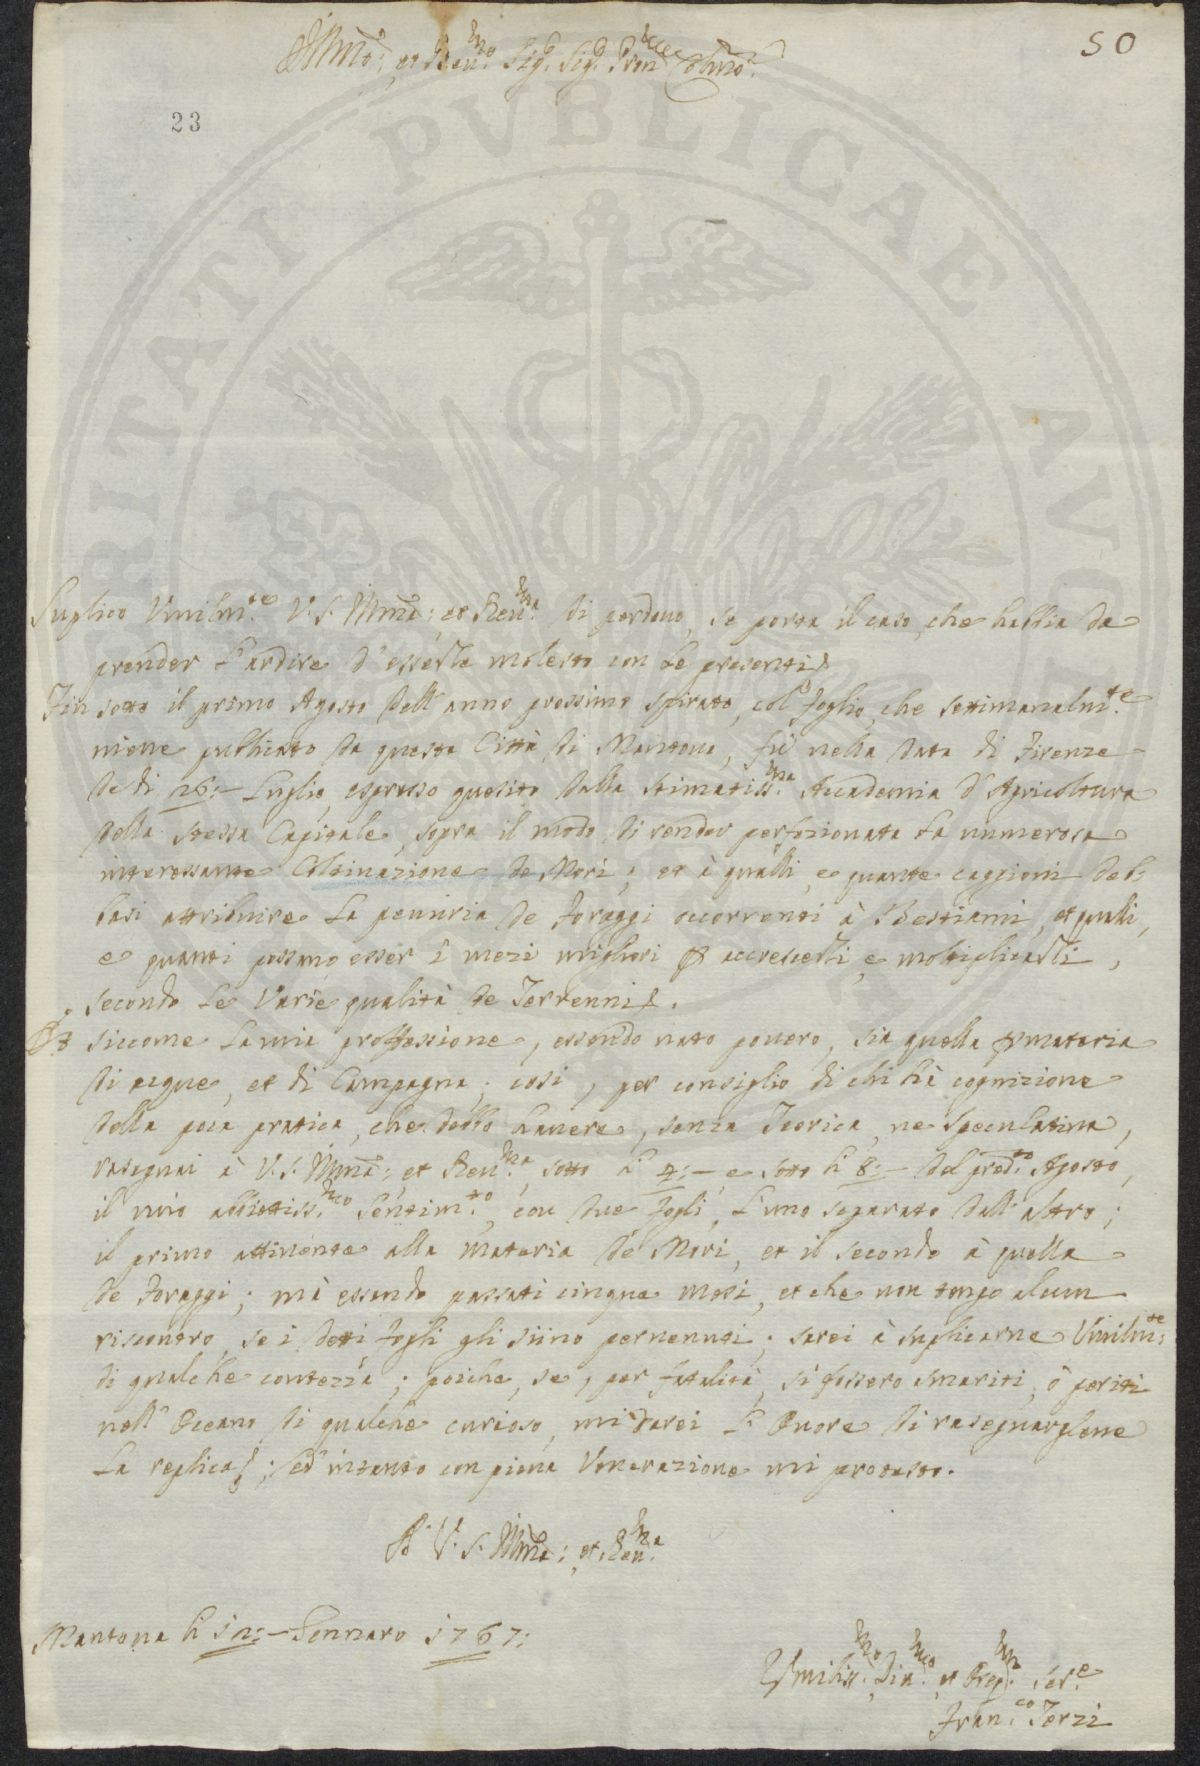 50
Illmo: et Reu:mo Sig: Sig: Pron: Colmo:
23
Suplico Umilm:te V. S. Illma: et Reu:ma di perdono, se porta il caso, che habbia da
prender l'ardire d'esserle molesto con le presenti
Fin sotto il primo Agosto dell'anno prossimo spirato, col foglio, che settimanalm:te
viene publicato da questa Città di Mantoua, fù nella data di Firenze
de di 26:- Luglio, espresso quesito dalla stimatiss:ma Accademia d'Agricoltura
della stessa Capitale, sopra il modo di render perfezionata la numerosa
interessante Coltiuazione de Mori; et à qualli, e quante caggioni deb=
basi attribuire la penuria de Foraggi occorrenti à Bestiami, et qualli,
e quanti possano esser i mezi migliori p accrescerli, e moltiplicarli,
secondo le varie qualità de Terrenni.
E siccome la mia professione, essendo nato pouero, sia quella p materia
di acque, et di Campagna; così, per consiglio di chi hà cognizione
della poca pratica, che debbo hauere, senza Teorica, ne Speculatiua,
rasegnai à V. S. Illma: et Reu:ma, sotto li 7:- e sotto li 8:- del pred:to Agosto,
il mio abbiettiss:mo Sentim:to, con due fogli, l'uno separato dall'altro;
il primo attinente alla materia de Mori, et il secondo à quella
de Foraggi; mà essendo passati cinque mesi, et che non tengo alcun
riscontro, se i detti fogli gli siino peruenuti; sarei à suplicarne Umilm:te
di qualche contezza; poiche, se, per fatalità, si fossero smariti, ò periti
nell'Oceano di qualche curioso, mi darei l'Onore di rasegnarglene
la replica; ed intanto con piena Venerazione mi protesto.
Di V. S. Illma: et Reu:ma
Mantoua li 12:- Gennaro 1767:
Umiliss:mo Diu:mo et Oreq:mo Ser:e
Fran:co Terzi